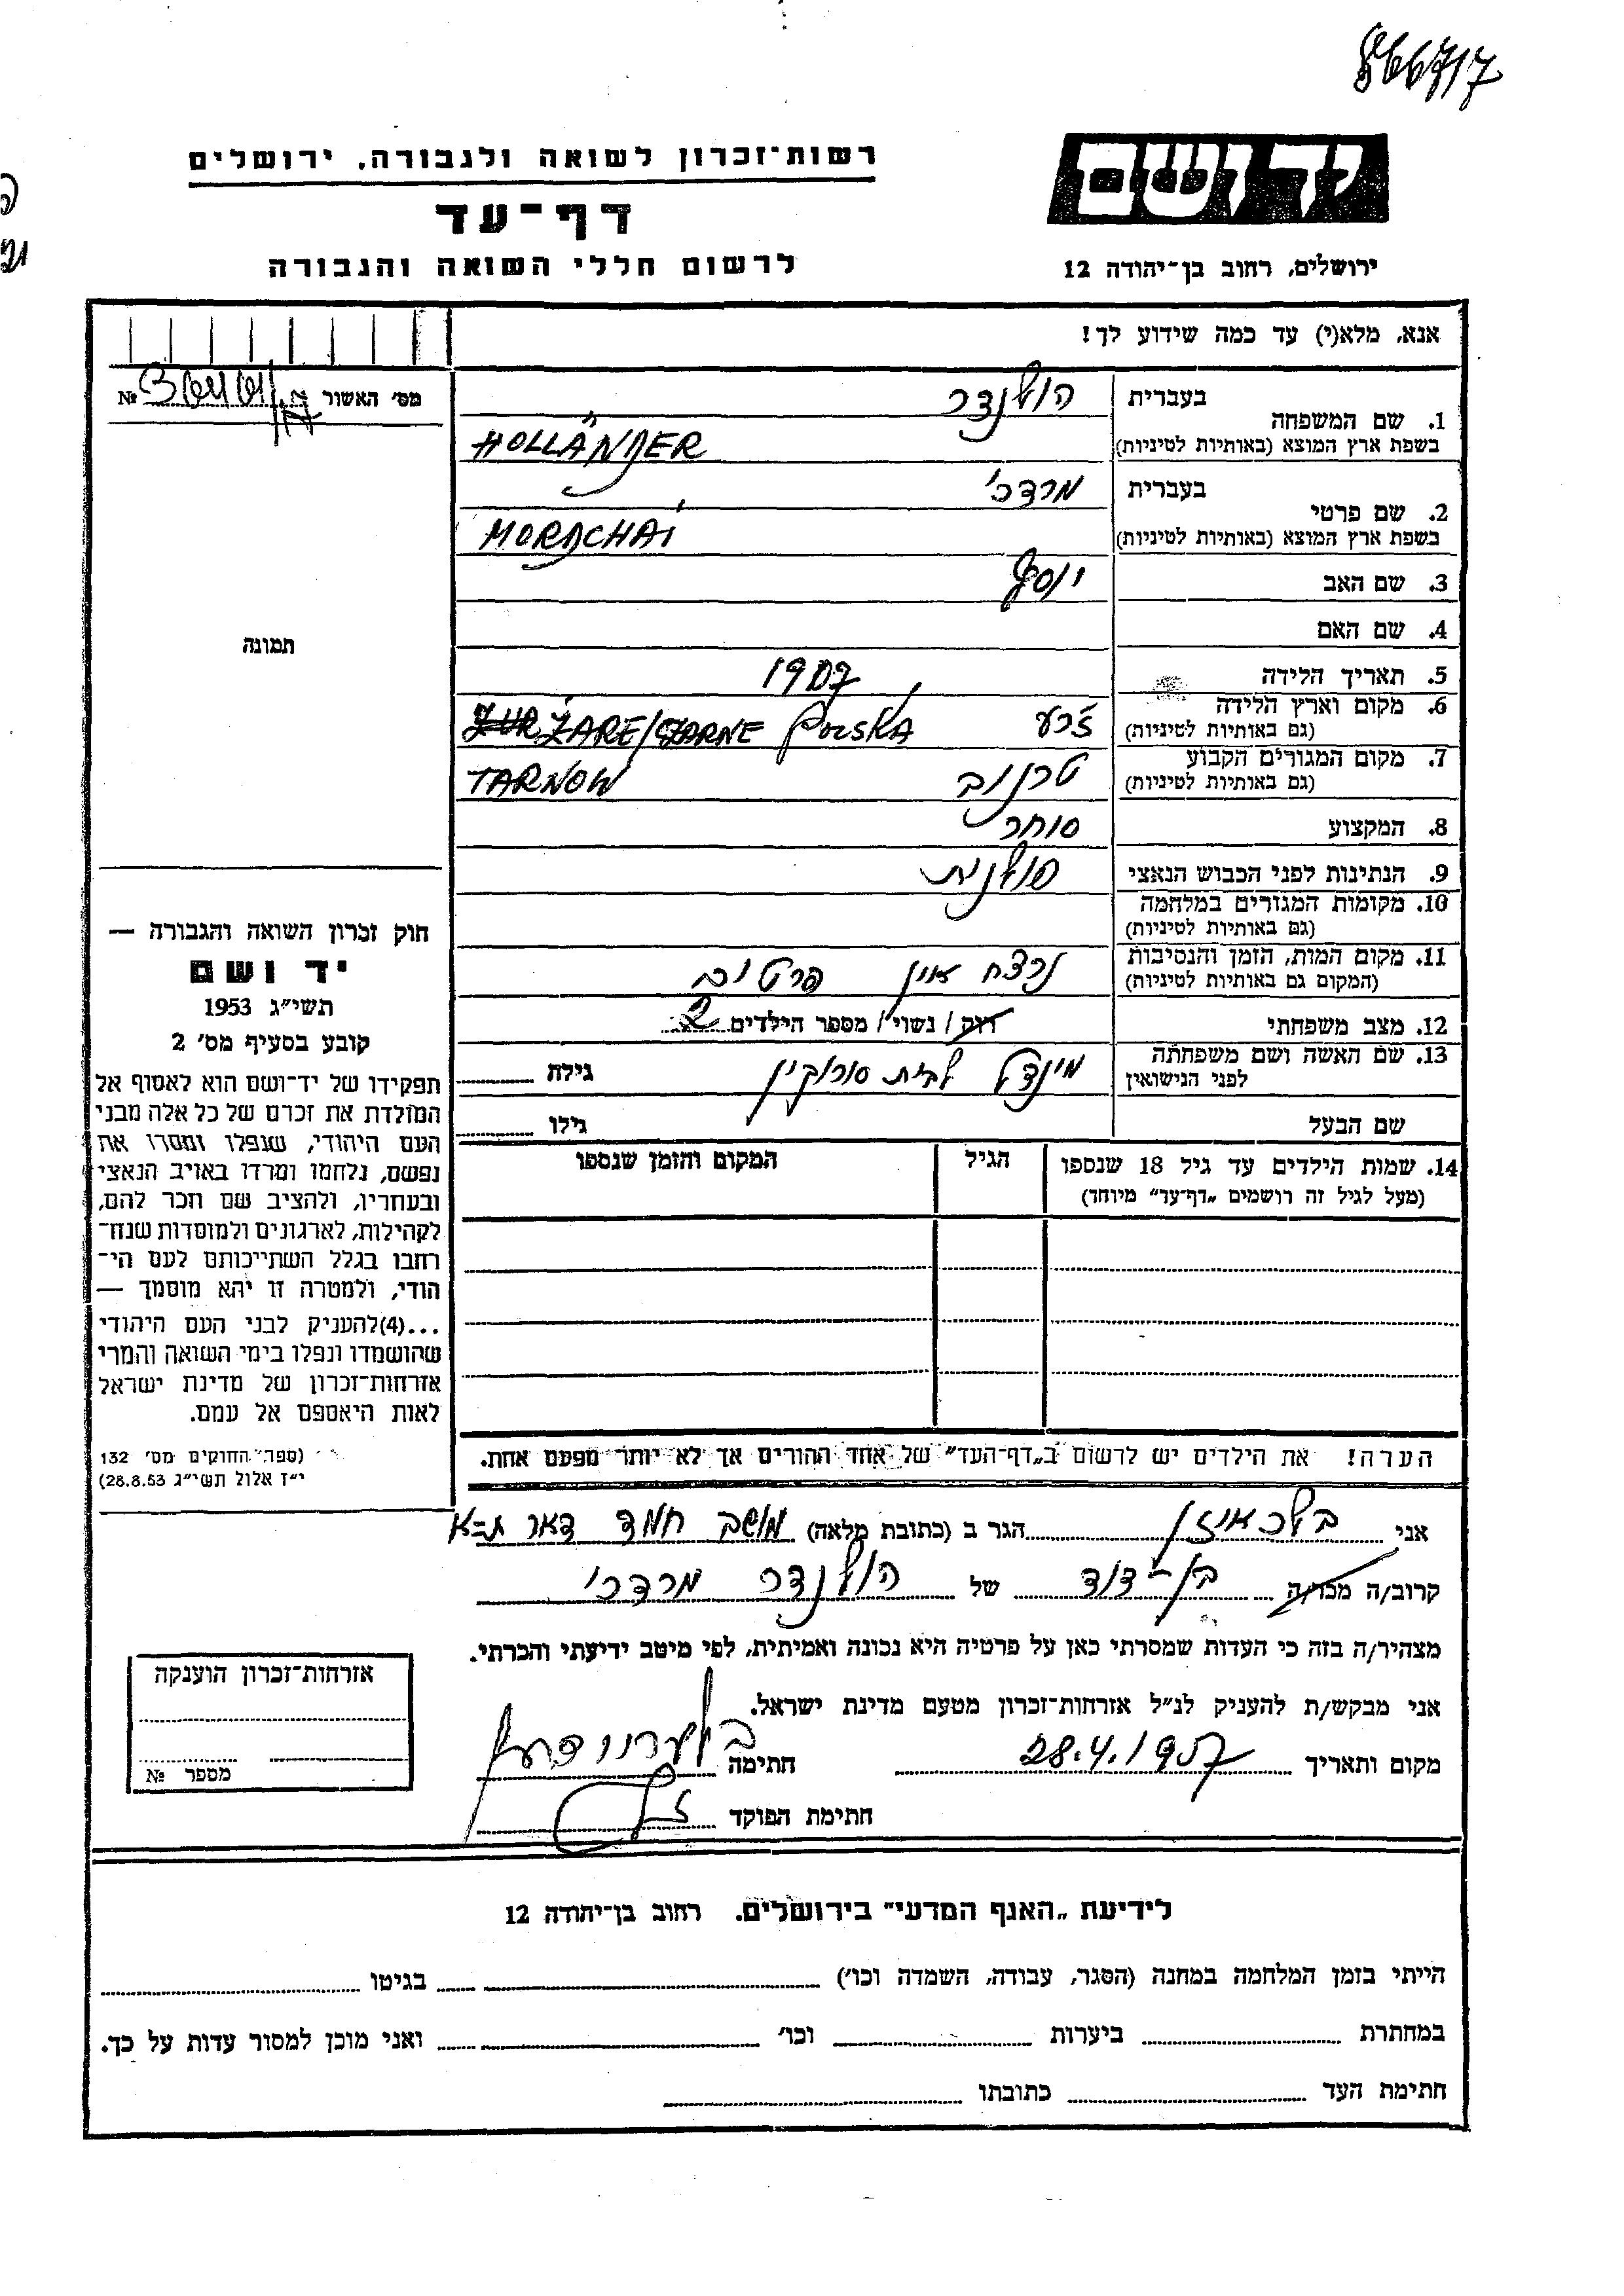 866717
יד ושם
ירושלים, רחוב בן־יהודה 12
רשות־זכרון לשואה ולגבורה, ירושלים
דף־עד
לרשום חללי השואה והגבורה
אנא, מלא(י) עד כמה שידוע לך!
מס׳ האשור №
1. שם המשפחה
בעברית הולנדר
בשפת ארץ המוצא (באותיות לטיניות) HOLLÄNDER
2. שם פרטי
בעברית מרדכי
בשפת ארץ המוצא (באותיות לטיניות) MORDCHAI
3. שם האב יוסף
4. שם האם
5. תאריך הלידה 1907
6. מקום וארץ הלידה
(גם באותיות לטיניות) ŻARE/CZARNE POLSKA
7. מקום המגורים הקבוע
(גם באותיות לטיניות) טרנוב TARNOW
8. המקצוע סוחר
9. הנתינות לפני הכבוש הנאצי פולנית
10. מקומות המגורים במלחמה
(גם באותיות לטיניות)
11. מקום המות, הזמן והנסיבות
(המקום גם באותיות לטיניות) נרצח
12. מצב משפחתי רווק/ נשוי/ מספר הילדים 2
13. שם האשה ושם משפחתה
לפני הנישואין מינדל לבית סורוקין גילה
שם הבעל גילו
14. שמות הילדים עד גיל 18 שנספו
(מעל לגיל זה רושמים „דף־עד״ מיוחד)
הגיל
המקום והזמן שנספו
תמונה
חוק זכרון השואה והגבורה —
יד ושם
תשי״ג 1953
קובע בסעיף מס׳ 2
תפקידו של יד־ושם הוא לאסוף אל
המולדת את זכרם של כל אלה מבני
העם היהודי, שנפלו ומסרו את
נפשם, נלחמו ומרדו באויב הנאצי
ובעוזריו, ולהציב שם וזכר להם,
לקהילות, לארגונים ולמוסדות שנח־
רבו בגלל השתייכותם לעם הי־
הודי, ולמטרה זו יהא מוסמך —
...(4)להעניק לבני העם היהודי
שהושמדו ונפלו בימי השואה והמרי
אזרחות־זכרון של מדינת ישראל
לאות היאספם אל עמם.
(ספר החוקים מס׳ 132
י״ז אלול תשי״ג 28.8.53)
הערה! את הילדים יש לרשום ב„דף־העד״ של אחד ההורים אך לא יותר מפעם אחת.
אני הגר ב (כתובת מלאה) מושב חמד דאר ת־א
קרוב/ה מכר/ה בן־דוד של הולנדר מרדכי
מצהיר/ה בזה כי העדות שמסרתי כאן על פרטיה היא נכונה ואמיתית, לפי מיטב ידיעתי והכרתי.
אני מבקש/ת להעניק לנ״ל אזרחות־זכרון מטעם מדינת ישראל.
מקום ותאריך 28.4.1957 חתימה
חתימת הפוקד
אזרחות־זכרון הוענקה
מספר №
לידיעת „האגף המדעי״ בירושלים. רחוב בן־יהודה 12
הייתי בזמן המלחמה במחנה (הסגר, עבודה, השמדה וכו׳) בגיטו
במחתרת ביערות וכו׳ ואני מוכן למסור עדות על כך.
חתימת העד כתובתו